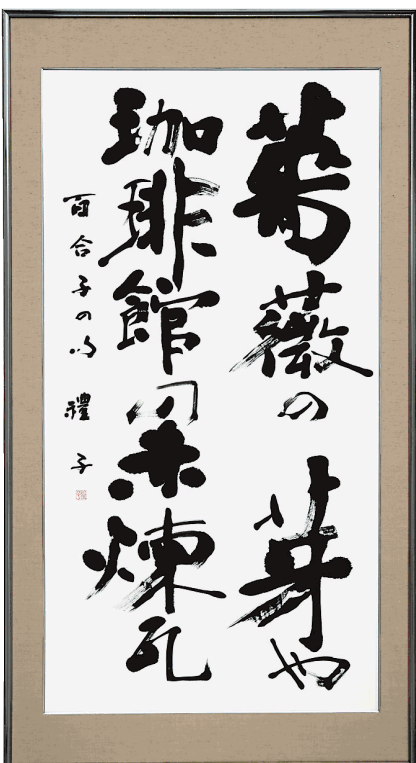 薔薇の芽や
珈琲館の朱煉瓦
百合子の句 禮子